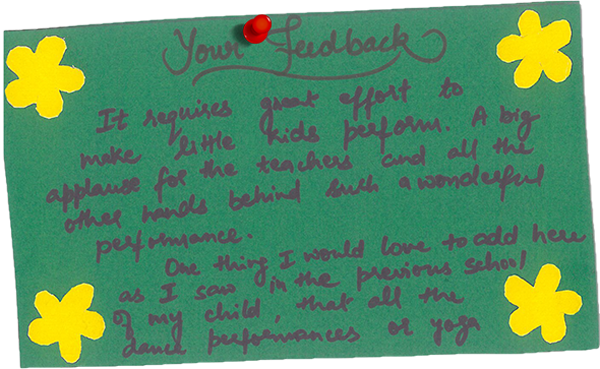 Your Feedback
It requires great effort to
make little kids perform. A big
applause for the teachers and all the
other hands behind such a wonderful
performance.
One thing I would love to add here
as I saw in the previous school
of my child, that all the
dance performances or yoga